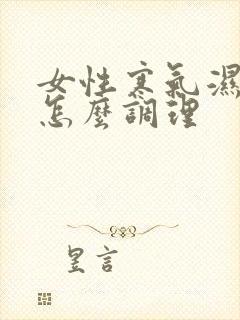 女性寒氣濕
怎麼調理
昱言